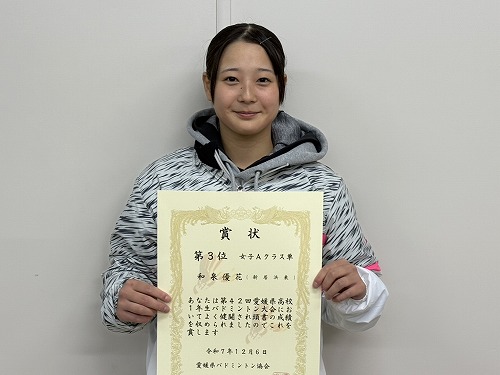 賞状
第3位 女子Aクラス単
和泉優花(新居浜東)
あなたは第42回愛媛県高校
1年生バドミントン大会にお
いてよく健闘され頭書の成績
を収められましたのでこれを
賞します
令和7年12月6日
愛媛県バドミントン協会